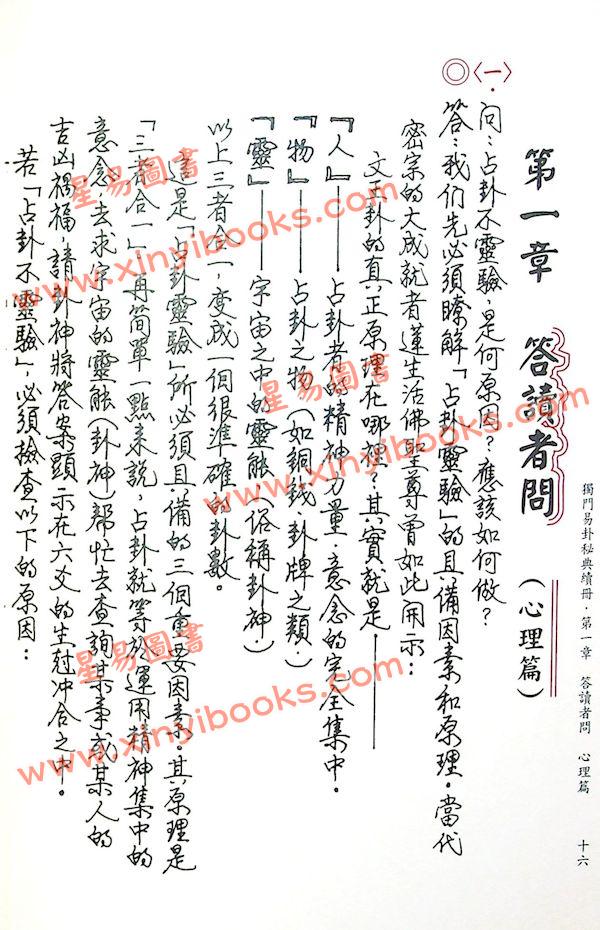 獨門易卦秘典續冊・第一章　答讀者問　心理篇　十六
第一章　答讀者問　(心理篇)
◎〈一〉・問：占卦不靈驗，是何原因？應該如何做？
答：我们先必須瞭解「占卦靈驗」的具備因素和原理。當代
密宗的大成就者蓮生活佛聖尊曾如此開示：
文王卦的真正原理在哪裡？其實就是——
『人』——占卦者的精神力量，意念的完全集中。
『物』——占卦之物(如銅錢卦牌之類。)
『靈』——宇宙之中的靈能(俗稱卦神。)
以上三者合一，变成一個很準確的卦數。
這是「占卦靈驗」所必須具備的三個重要因素。其原理是
「三者合一」再简單一點来說，占卦就等於運用精神集中的
意念，去求宇宙的靈能(卦神)幫忙去查詢某事或某人的
吉凶禍福，請卦神將答案顯示在六爻的生尅冲合之中。
若「占卦不靈驗」，必須檢查以下的原因：
星易圖書
www.xinyibooks.com
星易圖書
www.xinyibooks.com
星易圖書
www.xinyibooks.com